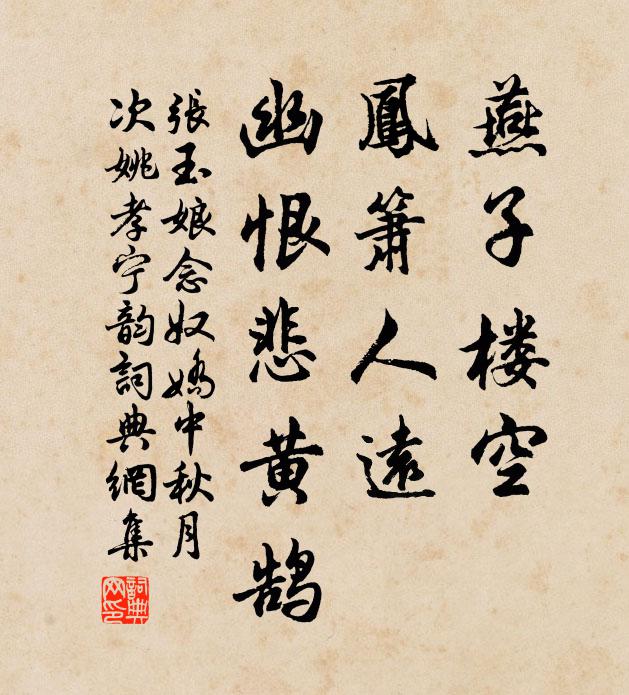 燕子楼空
鳳簫人遠
幽恨悲黄鹄
張玉娘念奴嬌中秋月
次姚孝宁韵詞典網集
詞典
网印